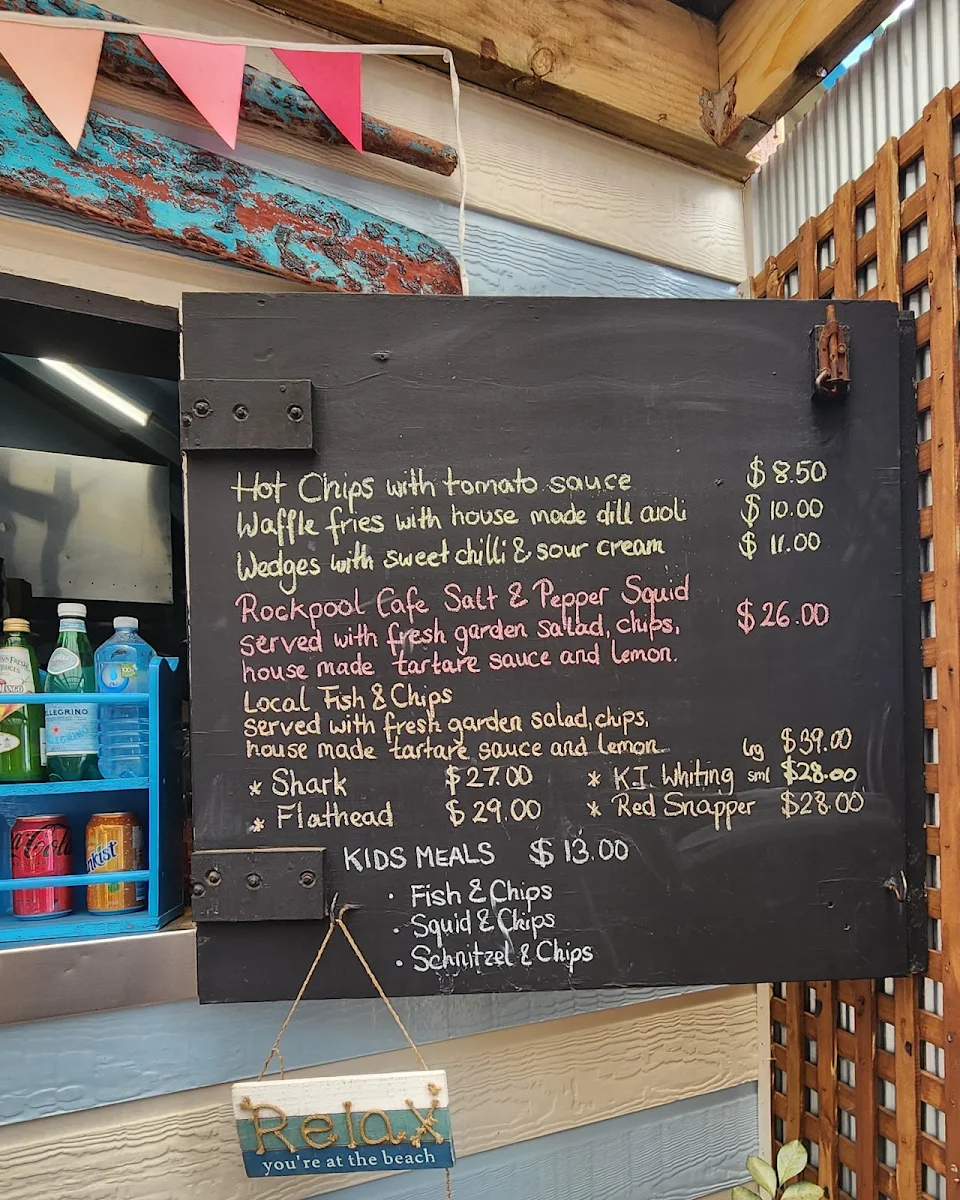 Hot Chips with tomato sauce $8.50
Waffle fries with house made dill aioli $10.00
Wedges with sweet chilli & sour cream $11.00
Rockpool Cafe Salt & Pepper Squid
served with fresh garden salad, chips, $26.00
house made tartare sauce and lemon.
Local Fish & Chips
served with fresh garden salad, chips,
house made tartare sauce and lemon lrg $39.00
* Shark $27.00 * K.I. Whiting sml $28.00
* Flathead $29.00 * Red Snapper $28.00
KIDS MEALS $13.00
• Fish & Chips
• Squid & Chips
• Schnitzel & Chips
MANGO
ELLEGRINO
Cola
nkist
Relax
you're at the beach